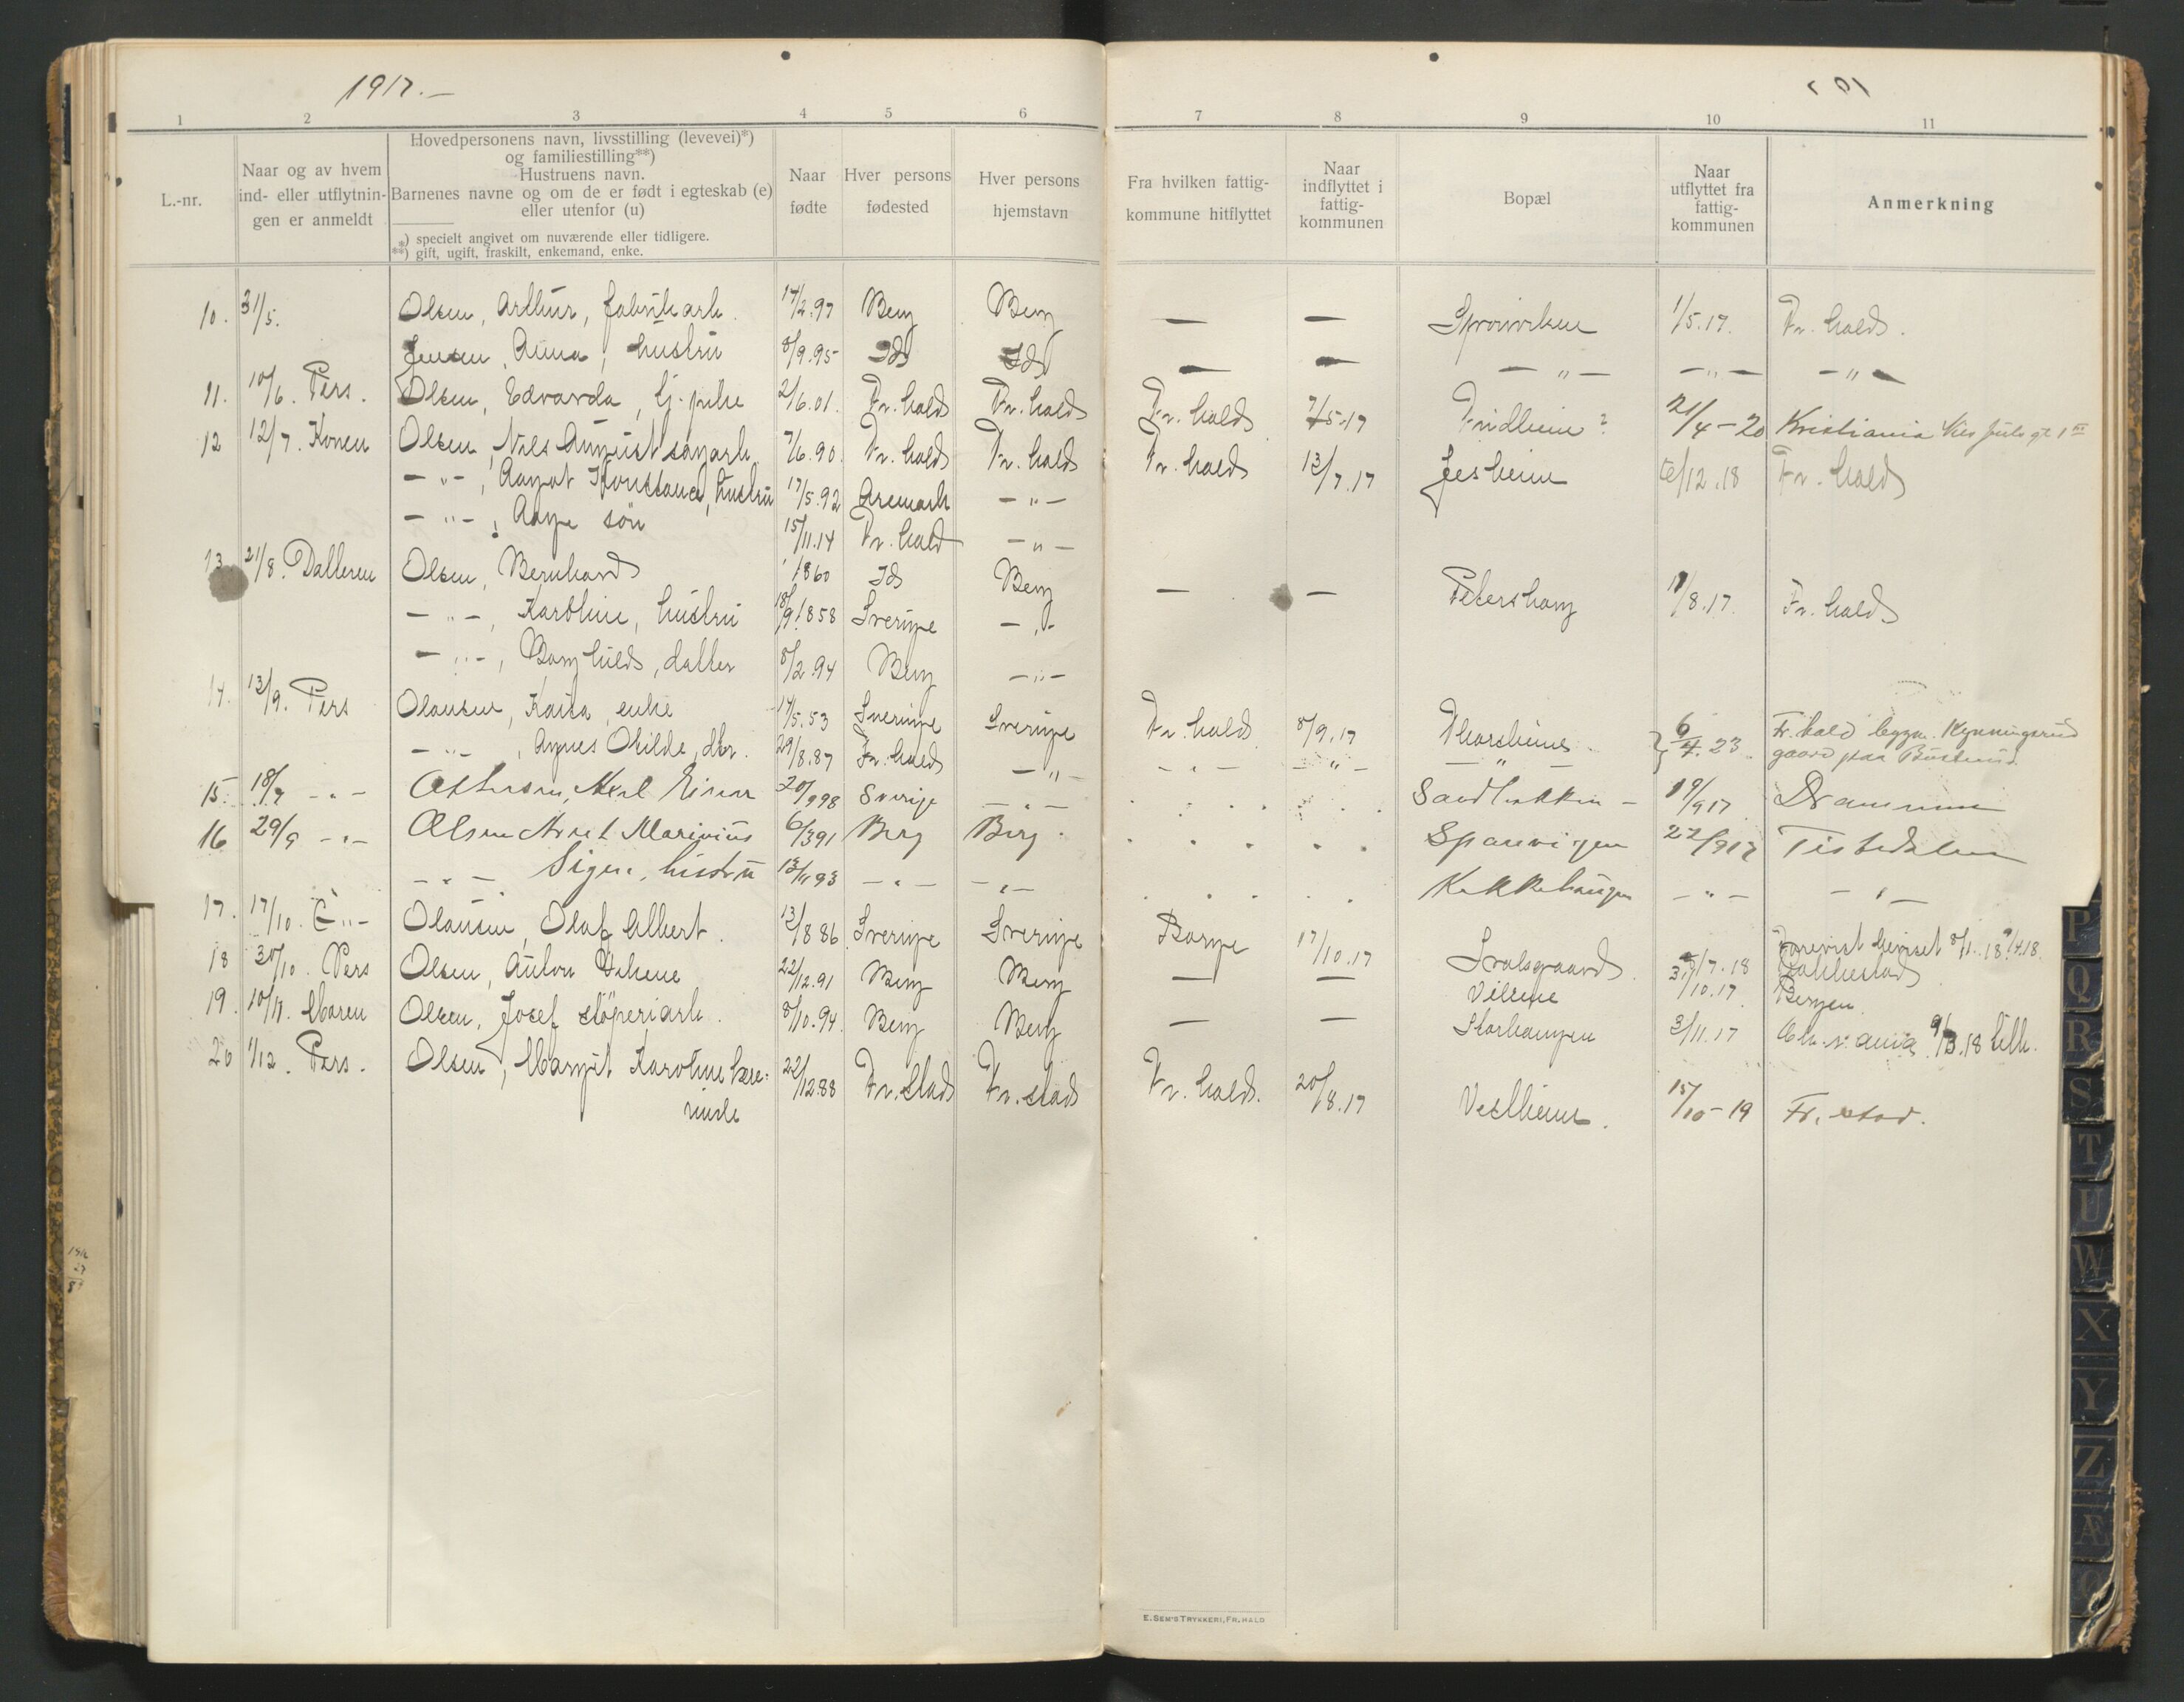 1917.-
1 2 3 4 5 6 7 8 9 10 11
L.-nr.
Naar og av hvem
ind- eller utflytnin-
gen er anmeldt
Hovedpersonens navn, livsstilling (levevei)*)
og familiestilling**)
Hustruens navn.
Barnenes navne og om de er født i egteskab (e)
eller utenfor (u)
*) specielt angivet om nuværende eller tidligere.
**) gift, ugift, fraskilt, enkemand, enke.
Naar
fødte
Hver persons
fødested
Hver persons
hjemstavn
Fra hvilken fattig-
kommune hitflyttet
Naar
indflyttet i
fattig-
kommunen
Bopæl
Naar
utflyttet fra
fattig-
kommunen
Anmerkning
10. 31/5. Olsen, Arthur, fabrikarb. 14/2.97 Berg Berg — — 1/5.17. Fr.hald.
Jensen, Anna, hustru 8/9.95 Id Id — — — " — — " — — " —
11. 10/6. Pers. Olsen, Edvarda, tj. pike 2/6.01. Fr.hald Fr.hald Fr.hald 7/5.17 Fridheim? 21/4-20 Kristiania
12 12/7. Konen Olsen, Nils August sagarb. 7/6.90. Fr.hald Fr.hald Fr.hald 13/7.17 Jesheim /12.18 Fr.hald
— " —, Aagot Konstance, hustru 17/5.92 Aremark — " —
— " —, Aage søn 15/11.14 Fr.hald — " —
13 21/8. Datteren Olsen, Bernhard 1860 Id Berg — — Petershaug 17/8.17. Fr.hald
— " —, Karoline, hustru 18/9.1858 Sverige — " —
— " —, Borghild, datter 8/2.94 Berg — " —
14. 13/9. Pers Olausen, Kaisa, enke 14/5.53 Sverige Sverige Fr.hald 8/9.17 Thorsheim } 6/4.23 Fr.hald
— " —, Agnes Otilde, dtr. 29/8.87 Fr.hald — " — — " — — " — — " — gaard paa
15. 18/9 — " — Axel Einar 20/9 98 Sverige — " — Sandbakken — 19/9 17 Drammen
16 29/9 — " — Olsen Marinius 6/3 91 Berg Berg. Sparevigen 27/9 17 Tistedalen
— " — Signe, hustru 13/11 93 — " — — " — — " — — " —
17. 17/10. — " — Olausen, Olaf Albert. 13/8 86 Sverige Sverige Borge 17/10.17 Svalsgaard. /7.18
18 30/10. Pers Olsen, Anton 22/12.91 Berg Berg — — /10.17 Bergen
19. 10/11. Moren Olsen, Josef støperiarb. 8/10.94. Berg Berg — — Storhaugen 3/11.17
20 1/12. Pers. Olsen, Margit Karoline lære- 22/12 88 Fr.stad Fr.stad Fr.hald. 20/8.17 Vestheim. 15/10-19 Fr.stad.
rinde
E. SEM'S TRYKKERI, FR.HALD
P
Q
R
S
T
U
W
X
Y
Z
Æ